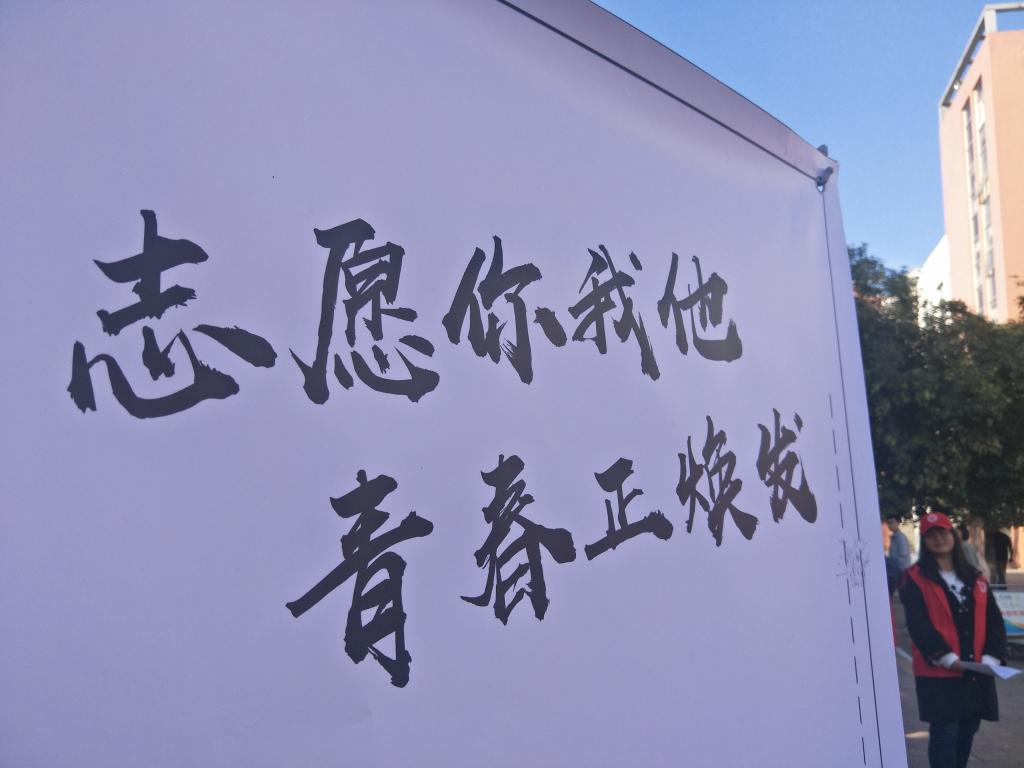 志愿你我他
青春正焕发